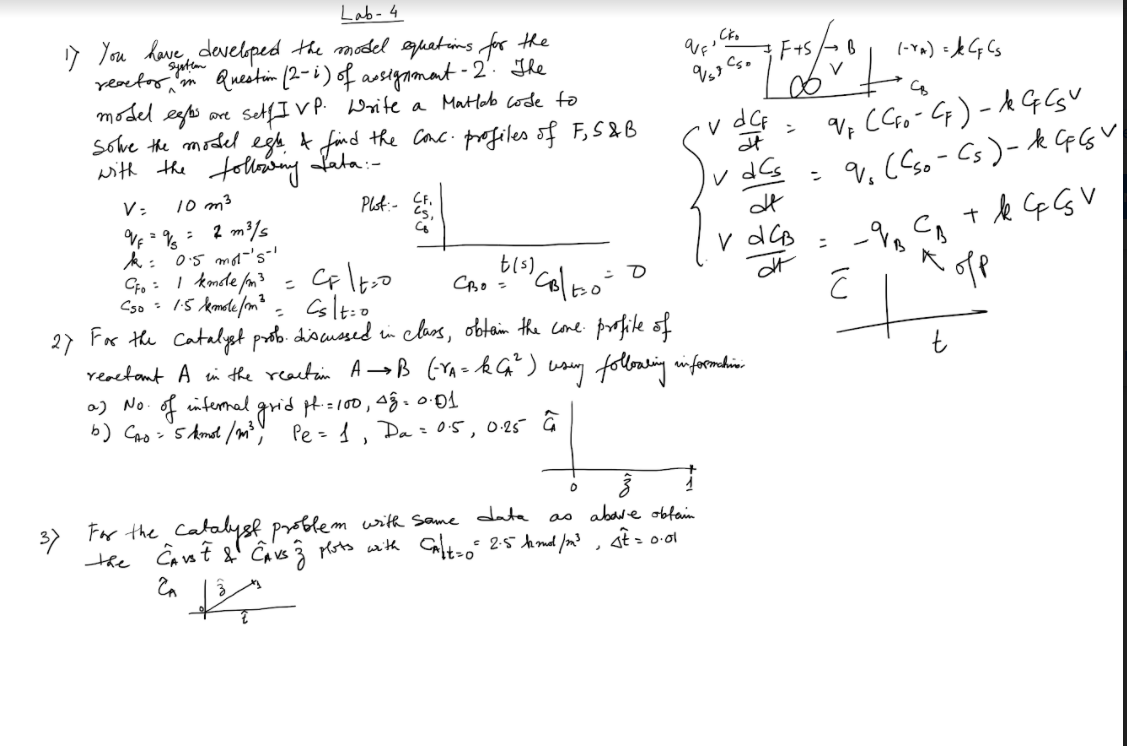 Lab-4
1) You have developed the model equations for the
reactor system in Question (2-i) of assignment-2. The
model eqns are set of IVP. Write a Matlab code to
Solve the model eqns & find the conc. profiles of F, S & B
with the following data:-
V = 10 m³
q_F = q_S = 2 m³/s
k = 0.5 mol⁻¹s⁻¹
C_F0 = 1 kmole/m³ = C_F|t=0
C_S0 = 1.5 kmole/m³ = C_S|t=0
Plot:- C_F, C_S, C_B
t(s)
C_B0 = C_B|t=0 = 0
q_F, C_F0
q_S, C_S0
F+S → B
V
C_B
(-r_A) = k C_F C_S
V dC_F/dt = q_F (C_F0 - C_F) - k C_F C_S V
V dC_S/dt = q_S (C_S0 - C_S) - k C_F C_S V
V dC_B/dt = -q_B C_B + k C_F C_S V
o/p
C̄
t
2) For the catalyst prob. discussed in class, obtain the conc. profile of
reactant A in the reaction A → B (-r_A = k C_A²) using following information.
a) No. of internal grid pt. = 100, Δẑ = 0.01
b) C_A0 = 5 kmol/m³, Pe = 1, Da = 0.5, 0.25
Ĉ_A
0 ẑ 1
3) For the catalyst problem with same data as above obtain
the Ĉ_A vs t̂ & Ĉ_A vs ẑ plots with C_A|t=0 = 2.5 kmol/m³, Δt̂ = 0.01
Ĉ_A
ẑ
t̂